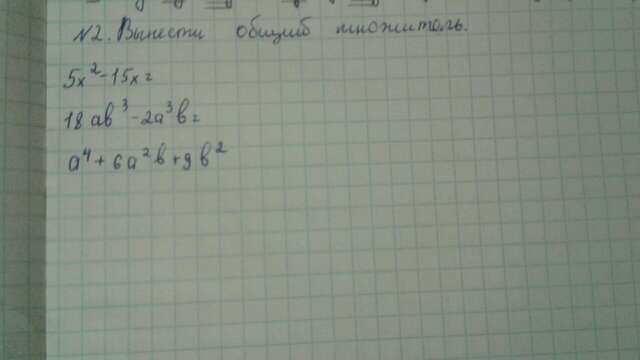 №2. Вынести общиб множитель.
5x² - 15x =
18ab³ - 2a³b =
a⁴ + 6a²b + 9b²